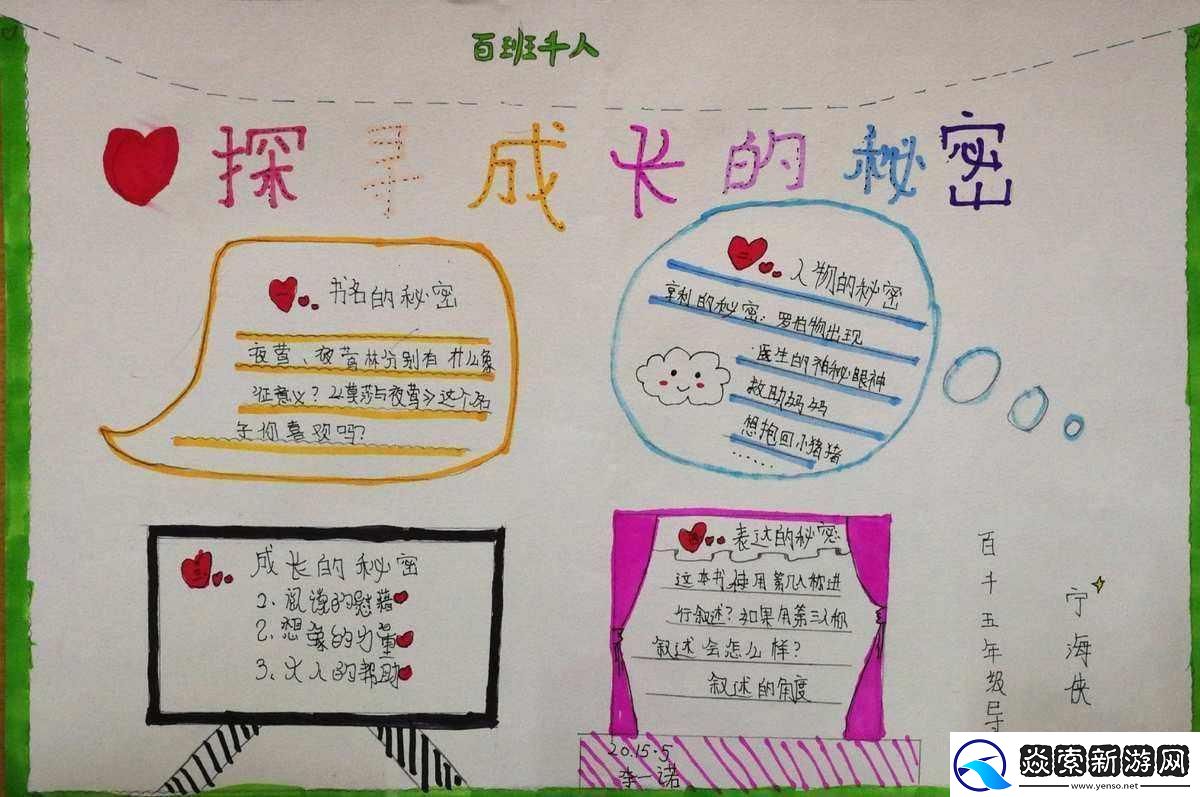 百班千人
探寻成长的秘密
一 书名的秘密
夜莺、夜莺林分别有什么象
征意义?《莫莎与夜莺》这个名
字你喜欢吗?
二 人物的秘密
亨利的秘密:罗伯物出现
医生的神秘眼神
救助妈妈
想抱回小猪猪
......
三 成长的秘密
1、阅读的慰藉
2、想象的力量
3、大人的帮助
四 表达的秘密
这本书使用第几人称进
行叙述?如果用第三人称
叙述会怎么样?
叙述的角度
2015.5
李一诺
百千五年级导
宁海侠
焱索新游网
www.yenso.net